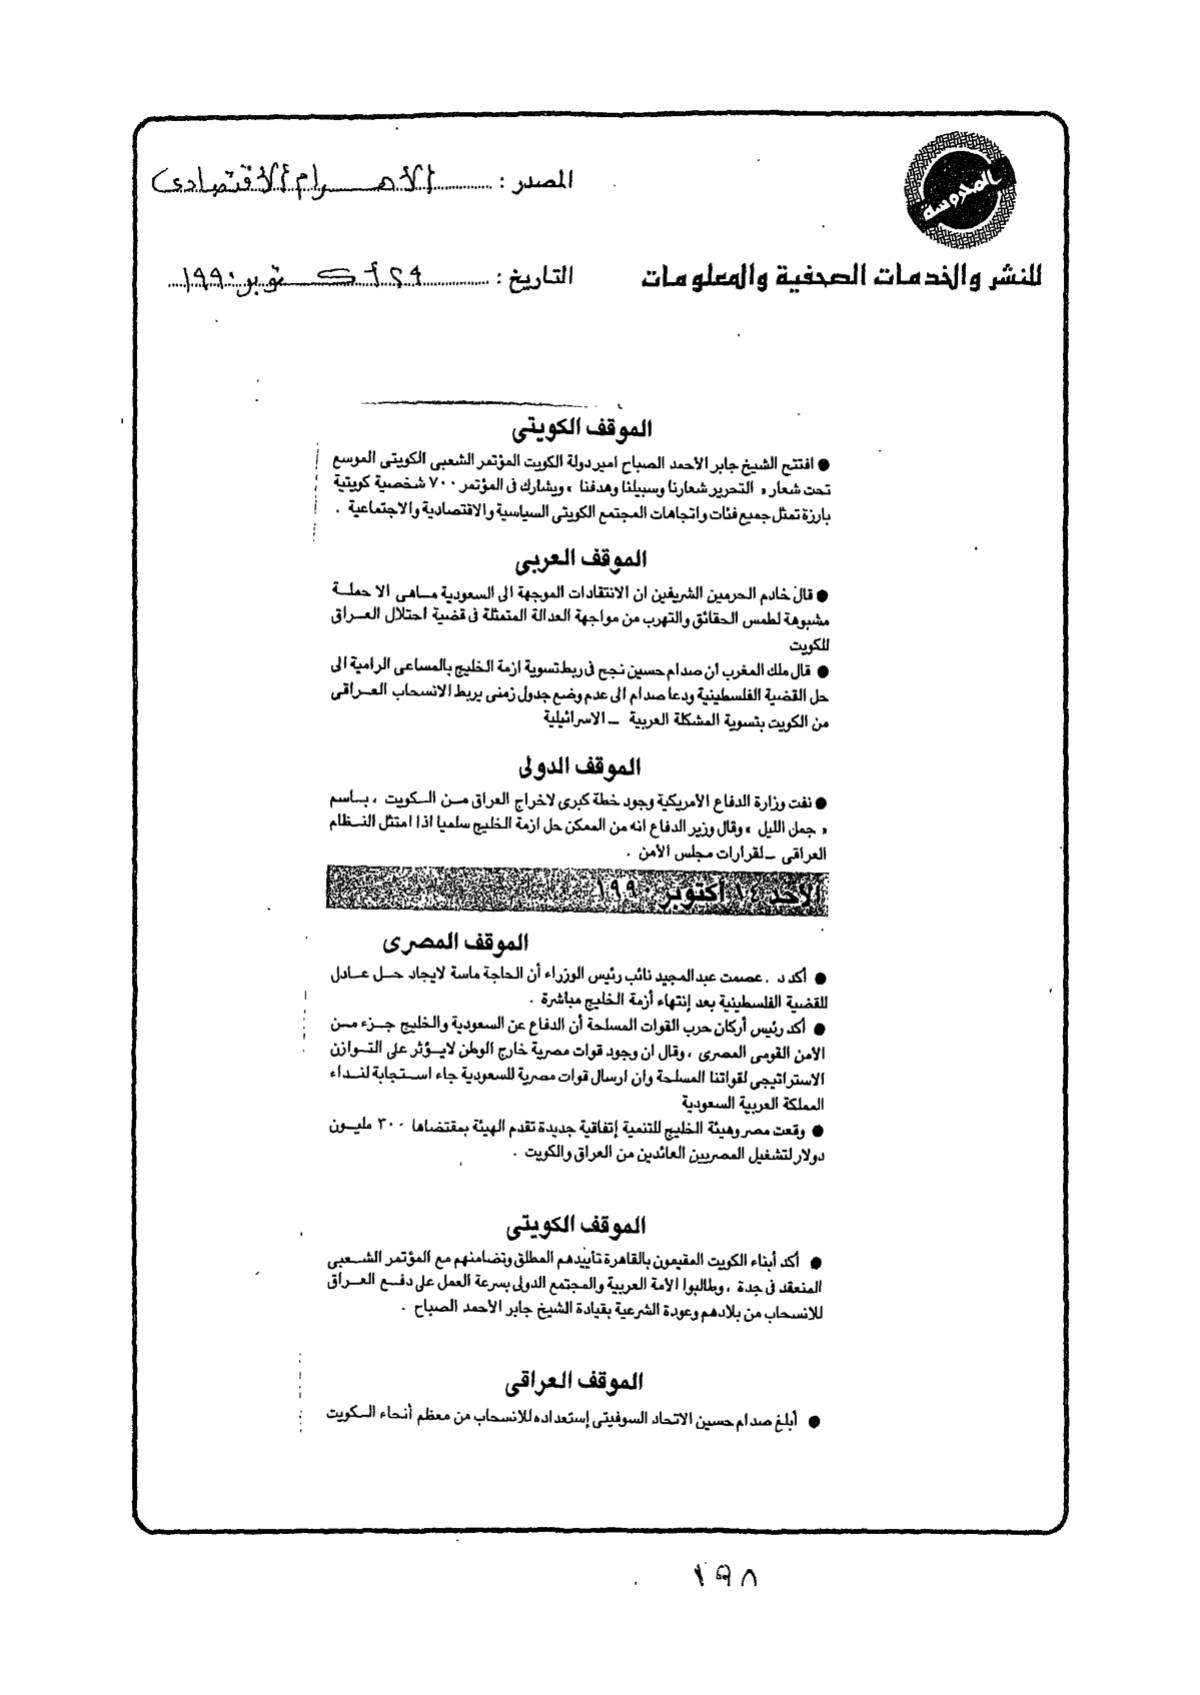 المحروسة
المصدر : الأهرام الاقتصادى
للنشر والخدمات الصحفية والمعلومات
التاريخ : ٢٩ أكتوبر ١٩٩٠
الموقف الكويتى
● افتتح الشيخ جابر الأحمد الصباح امير دولة الكويت المؤتمر الشعبى الكويتى الموسع
تحت شعار « التحرير شعارنا وسبيلنا وهدفنا » ويشارك فى المؤتمر ٧٠٠ شخصية كويتية
بارزة تمثل جميع فئات واتجاهات المجتمع الكويتى السياسية والاقتصادية والاجتماعية .
الموقف العربى
● قال خادم الحرمين الشريفين ان الانتقادات الموجهة الى السعودية ماهى الا حملة
مشبوهة لطمس الحقائق والتهرب من مواجهة العدالة المتمثلة فى قضية احتلال العراق
للكويت
● قال ملك المغرب أن صدام حسين نجح فى ربط تسوية ازمة الخليج بالمساعى الرامية الى
حل القضية الفلسطينية ودعا صدام الى عدم وضع جدول زمنى يربط الانسحاب العراقى
من الكويت بتسوية المشكلة العربية ـ الاسرائيلية
الموقف الدولى
● نفت وزارة الدفاع الأمريكية وجود خطة كبرى لاخراج العراق من الكويت ، باسم
« جمل الليل » وقال وزير الدفاع انه من الممكن حل ازمة الخليج سلميا اذا امتثل النظام
العراقى ـ لقرارات مجلس الأمن .
الأحد ١٤ أكتوبر ١٩٩٠
الموقف المصرى
● أكد د . عصمت عبدالمجيد نائب رئيس الوزراء أن الحاجة ماسة لايجاد حل عادل
للقضية الفلسطينية بعد إنتهاء أزمة الخليج مباشرة .
● أكد رئيس أركان حرب القوات المسلحة أن الدفاع عن السعودية والخليج جزء من
الأمن القومى المصرى ، وقال ان وجود قوات مصرية خارج الوطن لايؤثر على التوازن
الاستراتيجى لقواتنا المسلحة وان ارسال قوات مصرية للسعودية جاء استجابة لنداء
المملكة العربية السعودية
● وقعت مصر وهيئة الخليج للتنمية إتفاقية جديدة تقدم الهيئة بمقتضاها ٣٠٠ مليون
دولار لتشغيل المصريين العائدين من العراق والكويت .
الموقف الكويتى
● أكد أبناء الكويت المقيمون بالقاهرة تأييدهم المطلق وتضامنهم مع المؤتمر الشعبى
المنعقد فى جدة ، وطالبوا الأمة العربية والمجتمع الدولى بسرعة العمل على دفع العراق
للانسحاب من بلادهم وعودة الشرعية بقيادة الشيخ جابر الأحمد الصباح .
الموقف العراقى
● أبلغ صدام حسين الاتحاد السوفيتى إستعداده للانسحاب من معظم أنحاء الكويت
١٩٨